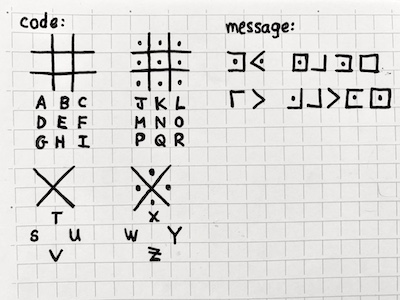 code:
A B C
D E F
G H I
J K L
M N O
P Q R
T
S U
V
X
W Y
Z
message: